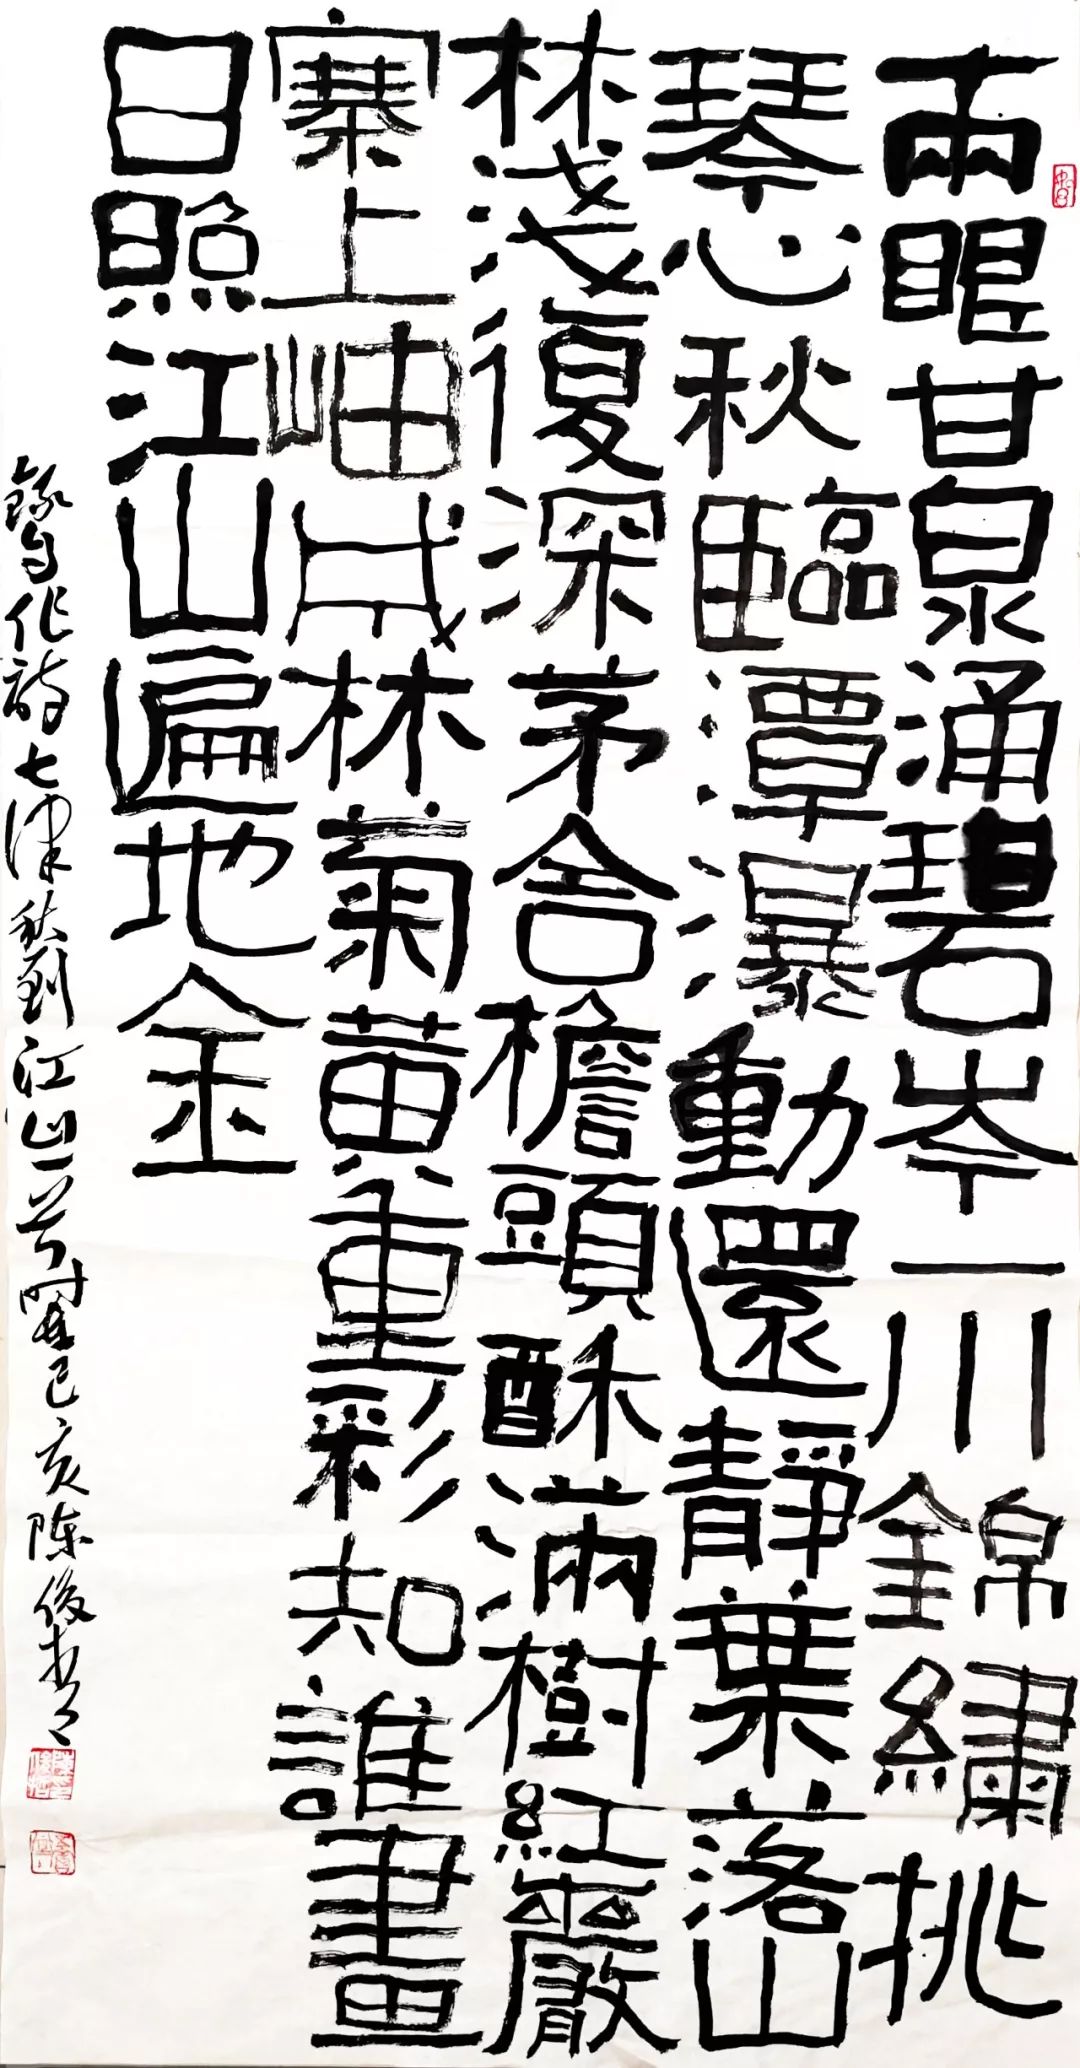 兩眼甘泉涌碧岑一川錦繡挑
琴心秋臨潭瀑動還靜葉落山
林浅復深茅舍檐頭酥滿樹紅巖
寨上岫成林菊黄重彩知誰畫
日照江山遍地金
錄自作詩七律秋到江山一首時在己亥陈俊書